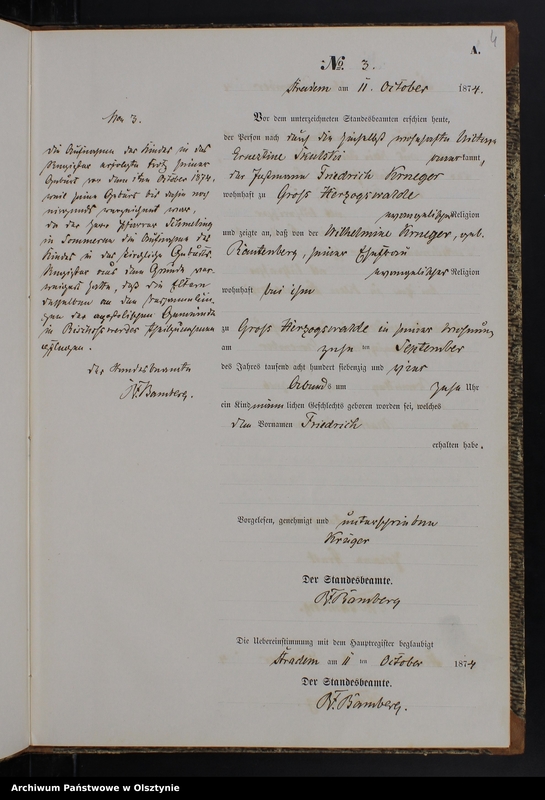 4
A.
No. 3.
Stradem am 11 October 1874.
Vor dem unterzeichneten Standesbeamten erschien heute,
der Person nach durch die hierselbst wohnhafte Wittwe
Ernestine Skubski anerkannt,
der Justmann Friedrich Krueger
wohnhaft zu Groß Herzogswalde
evangelischer Religion
und zeigte an, daß von der Wilhelmine Krueger, geb.
Rautenberg, seiner Ehefrau
evangelischer Religion
wohnhaft bei ihm
zu Groß Herzogswalde in seiner Wohnung
am zehn ten September
des Jahres tausend acht hundert siebenzig und vier
Abends um zehn Uhr
ein Kind männlichen Geschlechts geboren worden sei, welches
den Vornamen Friedrich
erhalten habe.
Vorgelesen, genehmigt und unterschrieben
Krüger
Der Standesbeamte.
Bamberg
Die Uebereinstimmung mit dem Hauptregister beglaubigt
Stradem am 11 ten October 1874
Der Standesbeamte.
Bamberg.
No 3.
Die Aufnahme des Kindes in das
Register erfolgte trotz seiner
Geburt vor dem 1ten October 1874,
weil seine Geburt bis dahin noch
nirgends verzeichnet war,
da der Herr Pfarrer Schmeling
in Sommerau die Aufnahme des
Kindes in das kirchliche Geburts-
Register aus dem Grunde ver-
weigert hatte, daß die Eltern
desselben an den Versammlun-
gen der apostolischen Gemeinde
in Bischofswerder theilzunehmen
pflegen.
Der Standesbeamte
Bamberg.
Archiwum Państwowe w Olsztynie